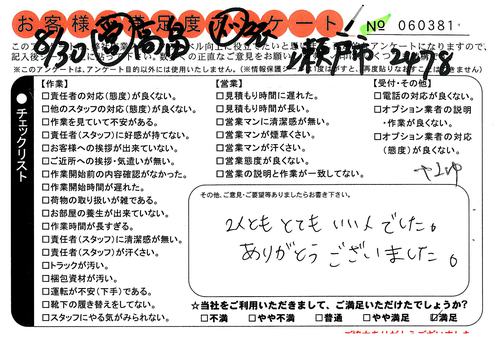 お客様満足度アンケート!
No 060381
8/30 瀬戸市 2478
このアンケートは、
※このアンケートは、アンケート目的以外には使用しません。
チェックリスト
【作業】
□責任者の対応(態度)が良くない。
□他のスタッフの対応(態度)が良くない。
□作業を見ていて不安がある。
□責任者(スタッフ)に好感が持てない。
□お客様への挨拶が出来ていない。
□ご近所への挨拶・気遣いが無い。
□作業開始前の内容確認がなかった。
□作業開始時間が遅れた。
□荷物の取り扱いが雑である。
□お部屋の養生が出来ていない。
□作業時間が長すぎる。
□責任者(スタッフ)に清潔感が無い。
□責任者(スタッフ)が汗くさい。
□トラックが汚い。
□梱包資材が汚い。
□運転が不安(下手)である。
□靴下の履き替えをしてない。
□スタッフにやる気がみられない。
【営業】
□見積もり時間に遅れた。
□見積もり時間が長い。
□営業マンに清潔感が無い。
□営業マンが煙草くさい。
□営業マンが汗くさい。
□営業態度が良くない。
□営業の説明と作業が違っていた。
【受付・その他】
□電話の対応が良くない。
□オプション業者の説明
・作業が良くない。
□オプション業者の対応
(態度)が良くない。
その他、ご意見・ご要望等ありましたらお書き下さい。
2人とも とても いい人 でした。
ありがとう ございました。
☆当社をご利用いただきまして、ご満足いただけたでしょうか?
□不満 □やや不満 □普通 □やや満足 ☑満足